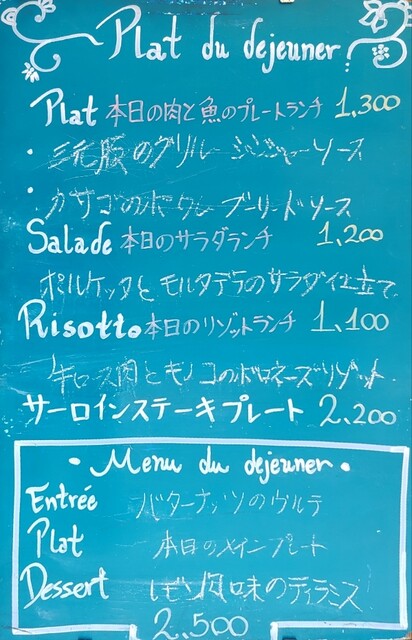 Plat du dejeuner
Plat 本日の肉と魚のプレートランチ 1,300
・三元豚のグリル ジンジャーソース
・カサゴのポワレ ブールレッドソース
Salade 本日のサラダランチ 1,200
ポルケッタとモルタデラのサラダ仕立て
Risotto 本日のリゾットランチ 1,100
牛ロース肉とキノコのボロネーズリゾット
サーロインステーキプレート 2,200
・Menu du dejeuner・
Entrée バターナッツのヴルテ
Plat 本日のメインプレート
Dessert レモン風味のティラミス
2,500